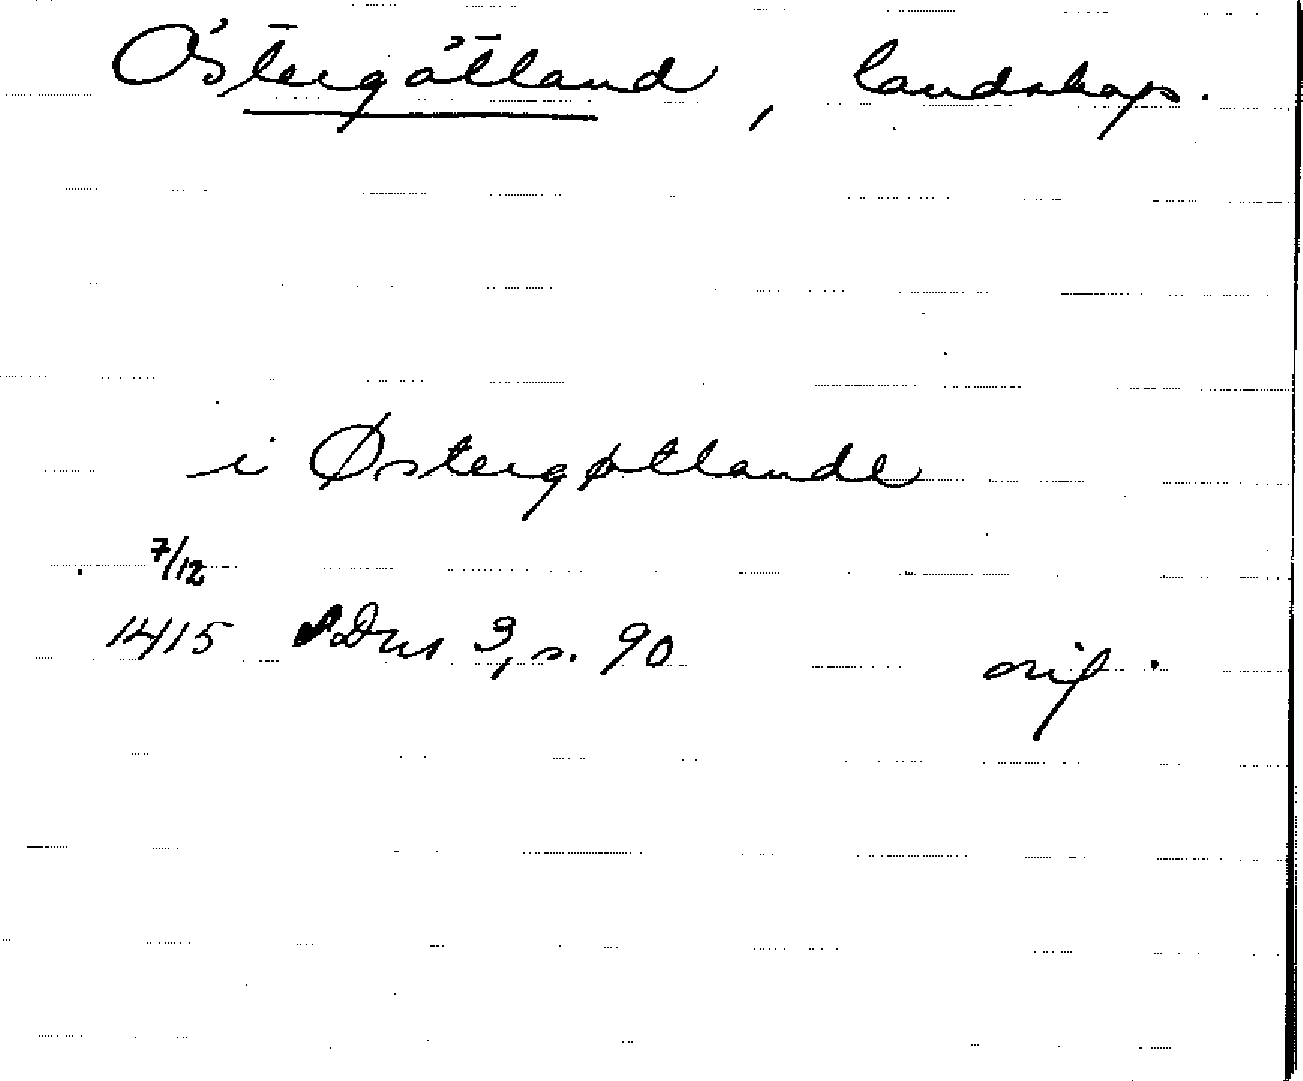 Östergötland, landskap.
i Østergøtlande
7/12
1415 SDns 3, s. 90 orig.